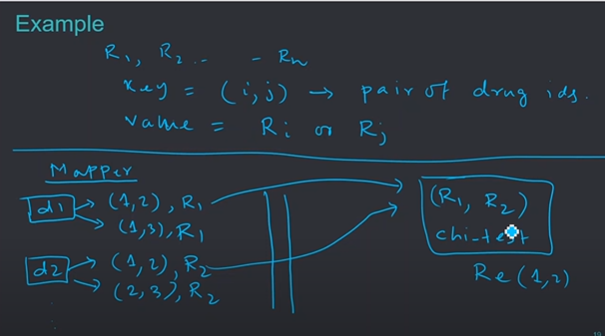 Example
R1, R2 .. - Rn
key = (i,j) → pair of drug ids.
value = Ri or Rj
Mapper
d1 → (1,2), R1
→ (1,3), R1
d2 → (1,2), R2
→ (2,3), R2
(R1, R2)
chi-test
Re(1,2)
19